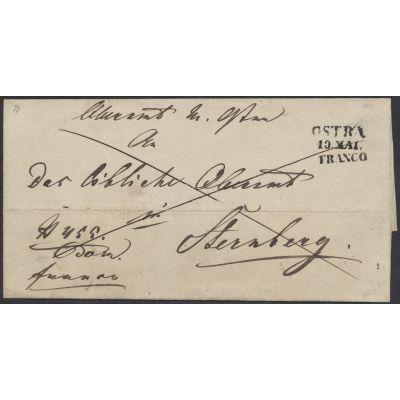 Oberamt M. Ostra
OSTRA
10. MAI.
FRANCO
An
Das löbliche Oberamt
in
Sternberg.
N 455.
franco